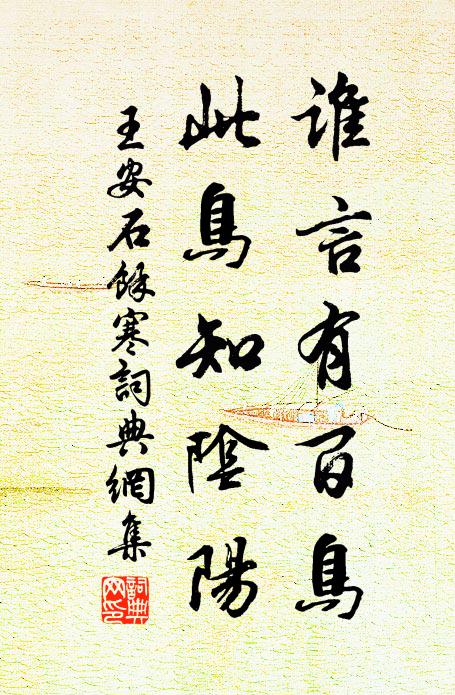 誰言有百鳥
此鳥知陰陽
王安石餘寒詞典網集
詞典網印